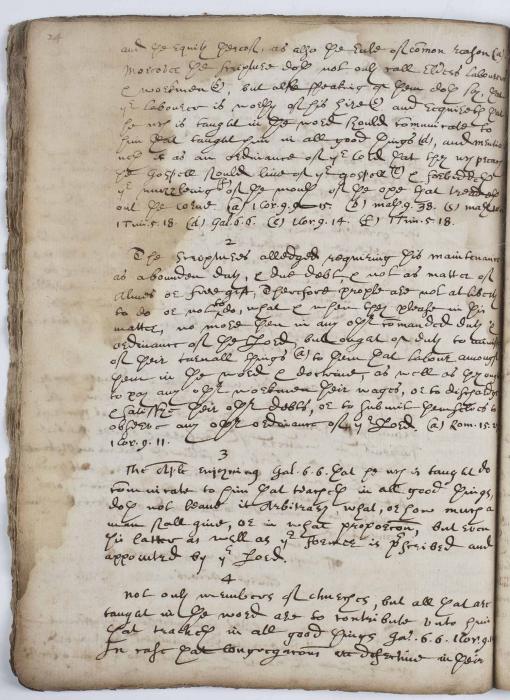 24
and the equity thereof, as also the rule of comon reason (a)
Moreover the scripture doth not only call Elders Labourers
& workmen (b), but also speaking of them doth say, that
ye labourer is worthy of his hire (c) and requireth that
he wch is taught in the word should comunicate to
him that taught him in all good things (d), and mentio
neth it as an ordinance of ye Lord that they wch preach
the Gospell should live of ye gospell (e) & forbiddeth
ye muzzleing of the mouth of the oxe that treadeth
out the corne (a) 1 Cor. 9. 15. (b) math. 9. 38. (c) math. 10
1 Tim. 5 18. (d) Gal. 6. 6. (e) 1 Cor. 9. 14. (f) 1 Tim. 5 18.
2
The scriptures alledged requiring this maintenance
as a bounden duty, & due debt, & not as matter of
Almes or free gift, Therefore people are not at liberty
to do or not to do, what & when they please in this
matter, no more then in any othr comanded duty &
ordinance of the Lord, but ought of duty to
of their carnall things (a) to them that labour amongst
them in the word & doctrine, as well as they ought
to pay any othr workmen their wages, or to discharge
& satisfie their othr debts, or to submit themselves to
observe any othr ordinance of ye Lord. (a) Rom. 15. 27
1 Cor. 9. 11.
3
The Apostle enjoyning Gal. 6. 6. that he wch is taught do
comunicate to him that teacheth in all good things,
doth not leave it Arbitrary, what, or how much a
man shall give, or in what proporcon, but even
this latter as well as ye former is prscribed and
appointed by ye Lord.
4
Not only members of churches, but all that are
taught in the word are to contribute unto him
that teacheth in all good things Gal. 6. 6. 1 Cor. 9.
In case that Congregacons are defective in their